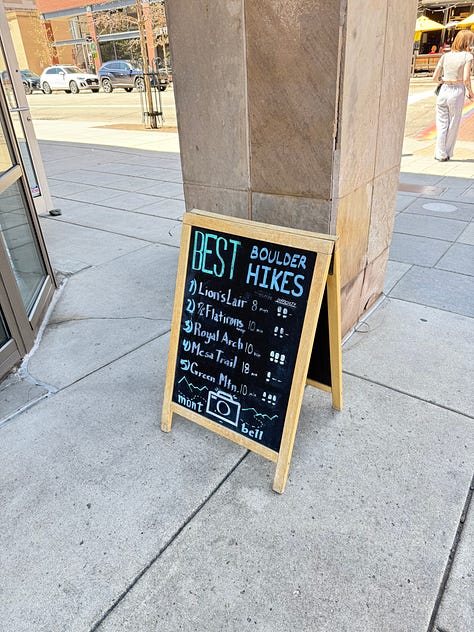 BEST BOULDER HIKES
DIFFICULTY
1) Lion's Lair 8 min
2) 1/2 Flatirons 10 min
3) Royal Arch 10 min
4) Mesa Trail 18 min
5) Green Mtn. 10 min
mont bell